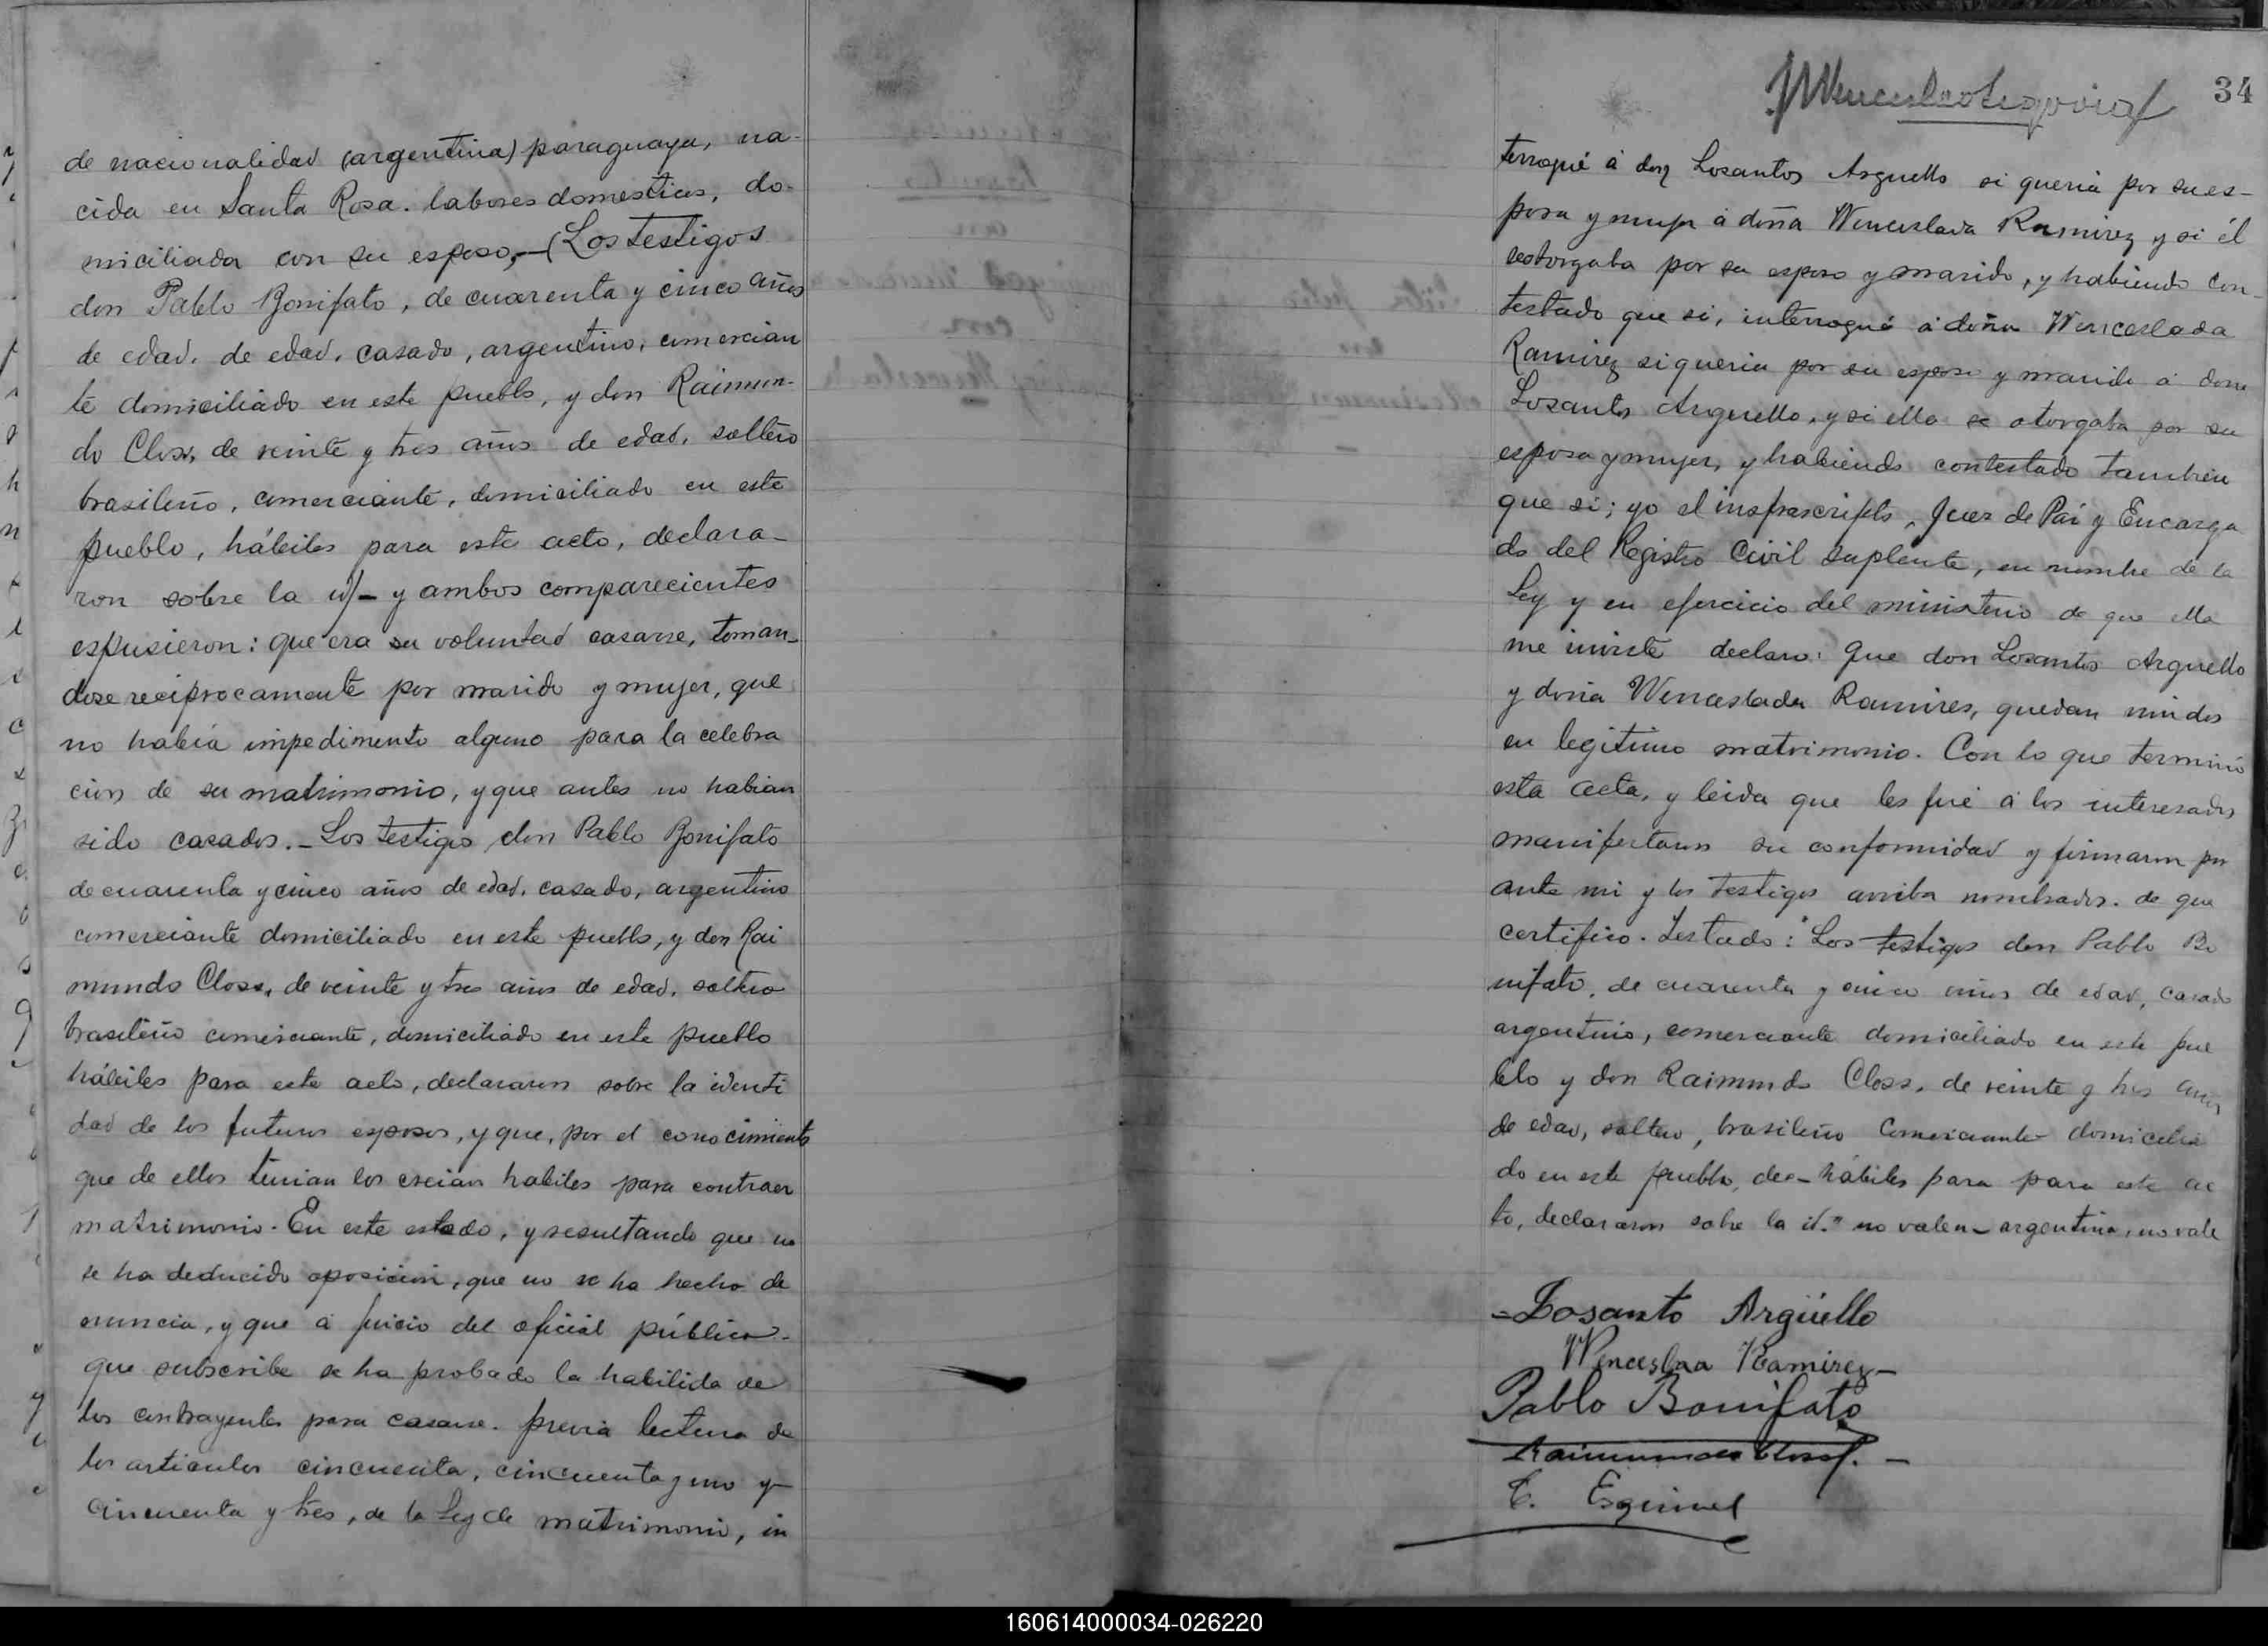 de nacionalidad (argentina) paraguaya, na-
cida en Santa Rosa. labores domesticas, do-
miciliada con su esposo,—(Los testigos
don Pablo Bonifato, de cuarenta y cinco años
de edad. de edad, casado, argentino, comercian
te domiciliado en este pueblo, y don Raimun-
do Closs, de veinte y tres años de edad, soltero
brasileño, comerciante, domiciliado en este
pueblo, hábiles para este acto, declara-
ron sobre la id— y ambos comparecientes
espusieron: que era su voluntad casarse, toman-
dose reciprocamente por marido y mujer, que
no había impedimento alguno para la celebra
cion de su matrimonio, y que antes no habian
sido casados.—Los testigos don Pablo Bonifato
de cuarenta y cinco años de edad, casado, argentino
comerciante domiciliado en este pueblo, y don Rai
mundo Closs, de veinte y tres años de edad, soltero
brasileño comerciante, domiciliado en este pueblo
hábiles para este acto, declararon sobre la identi
dad de los futuros esposos, y que, por el conocimiento
que de ellos tenian los creian habiles para contraer
matrimonio. En este estado, y resultando que no
se ha deducido oposición, que no se ha hecho de
nuncia, y que á juicio del oficial público
que subscribe se ha probado la habilida de
los contrayentes para casarse. previa lectura de
los articulos cincuenta, cincuenta y uno y
cincuenta y tres, de la Ley de matrimonio, in
34
terrogué á don Losantos Arguello si queria por su es-
posa y mujer á doña Wenceslada Ramirez y si él
seotorgaba por su esposo y marido, y habiendo con-
testado que si, interrogué á doña Wenceslada
Ramirez si queria por su esposo y marido á don
Losantos Arguello, y si ella se otorgaba por su
esposa y mujer, y habiendo contestado tambien
que si; yo el insfrascripto, Juez de Paz y Encarga
do del Registro Civil suplente, en nombre de la
Ley y en ejercicio del ministerio de que ella
me inviste declaro: Que don Losantos Arguello
y doña Wenceslada Ramires, quedan unidos
en legitimo matrimonio. Con lo que terminó
esta acta, y leida que les fué á los interesados
manifestaron su conformidad y firmaron por
ante mi y los testigos arriba nombrados. de que
certifico. Testado: "Los testigos don Pablo Bo
nifato, de cuarenta y cinco años de edad, casado
argentino, comerciante domiciliado en este pue
blo y don Raimundo Closs, de veinte y tres años
de edad, soltero, brasileño Comerciante domicilia
do en este pueblo, dec— hábiles para para este ac
to, declararon sobre la id." no valen— argentina, no vale
Losanto Argüello
Wenceslaa Ramirez—
Pablo Bonifato
Raimundo Closs.—
E. Esquivel
160614000034-026220